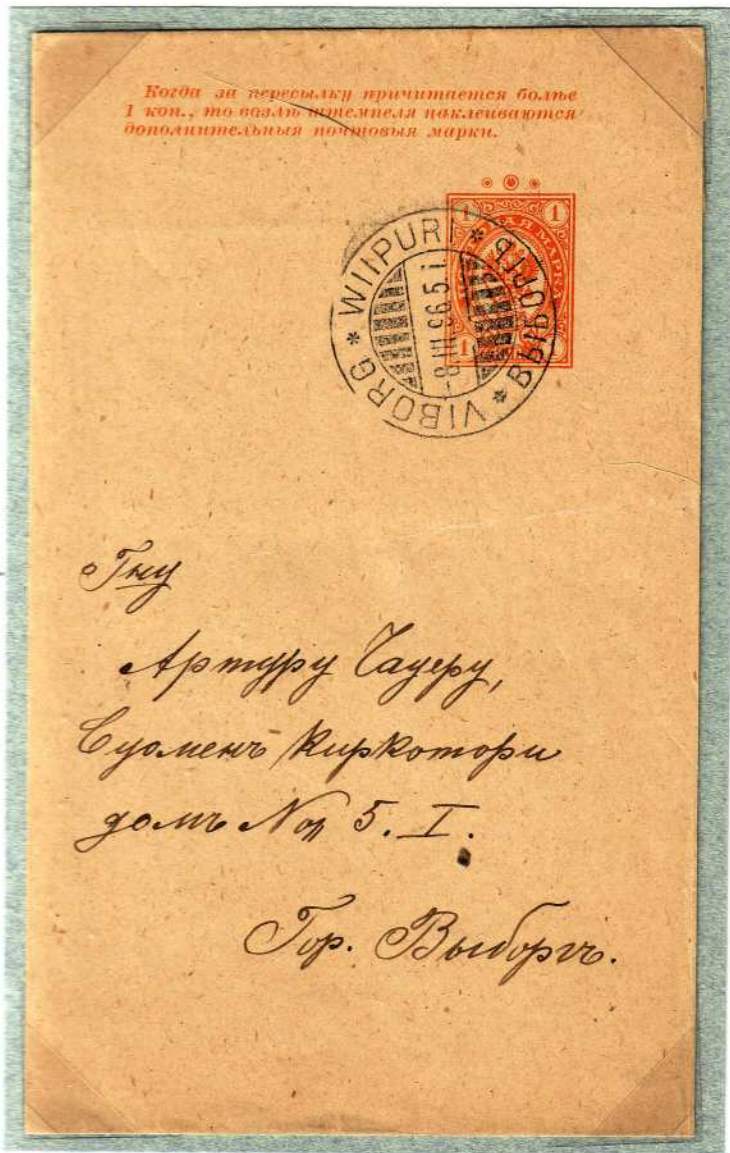 Когда за пересылку причитается болѣе
1 коп., то возлѣ штемпеля наклеиваются
дополнительныя почтовыя марки.
1 1
МАРКА
1
WIIPURI * ВЫБОРГЪ * VIBORG *
-8.III.96.5 i
Гну
Артуру Сауеру,
Суоменъ Киркотори
домъ № 5. I.
Гор. Выборгъ.